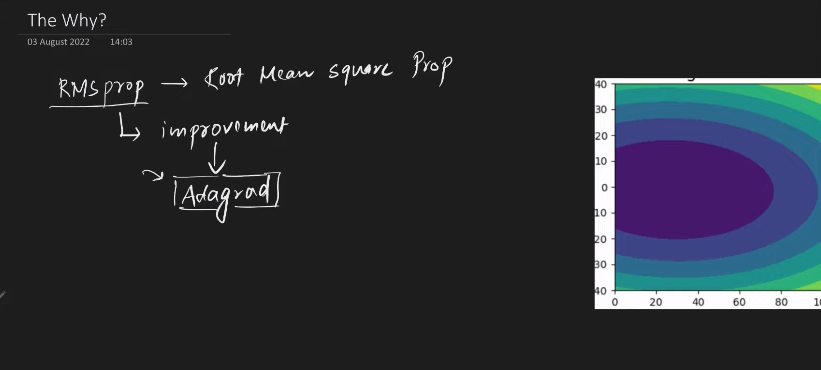 The Why?
03 August 2022 14:03
RMSprop → Root Mean square Prop
improvement
Adagrad
40
30
20
10
0
10
20
30
40
0 20 40 60 80